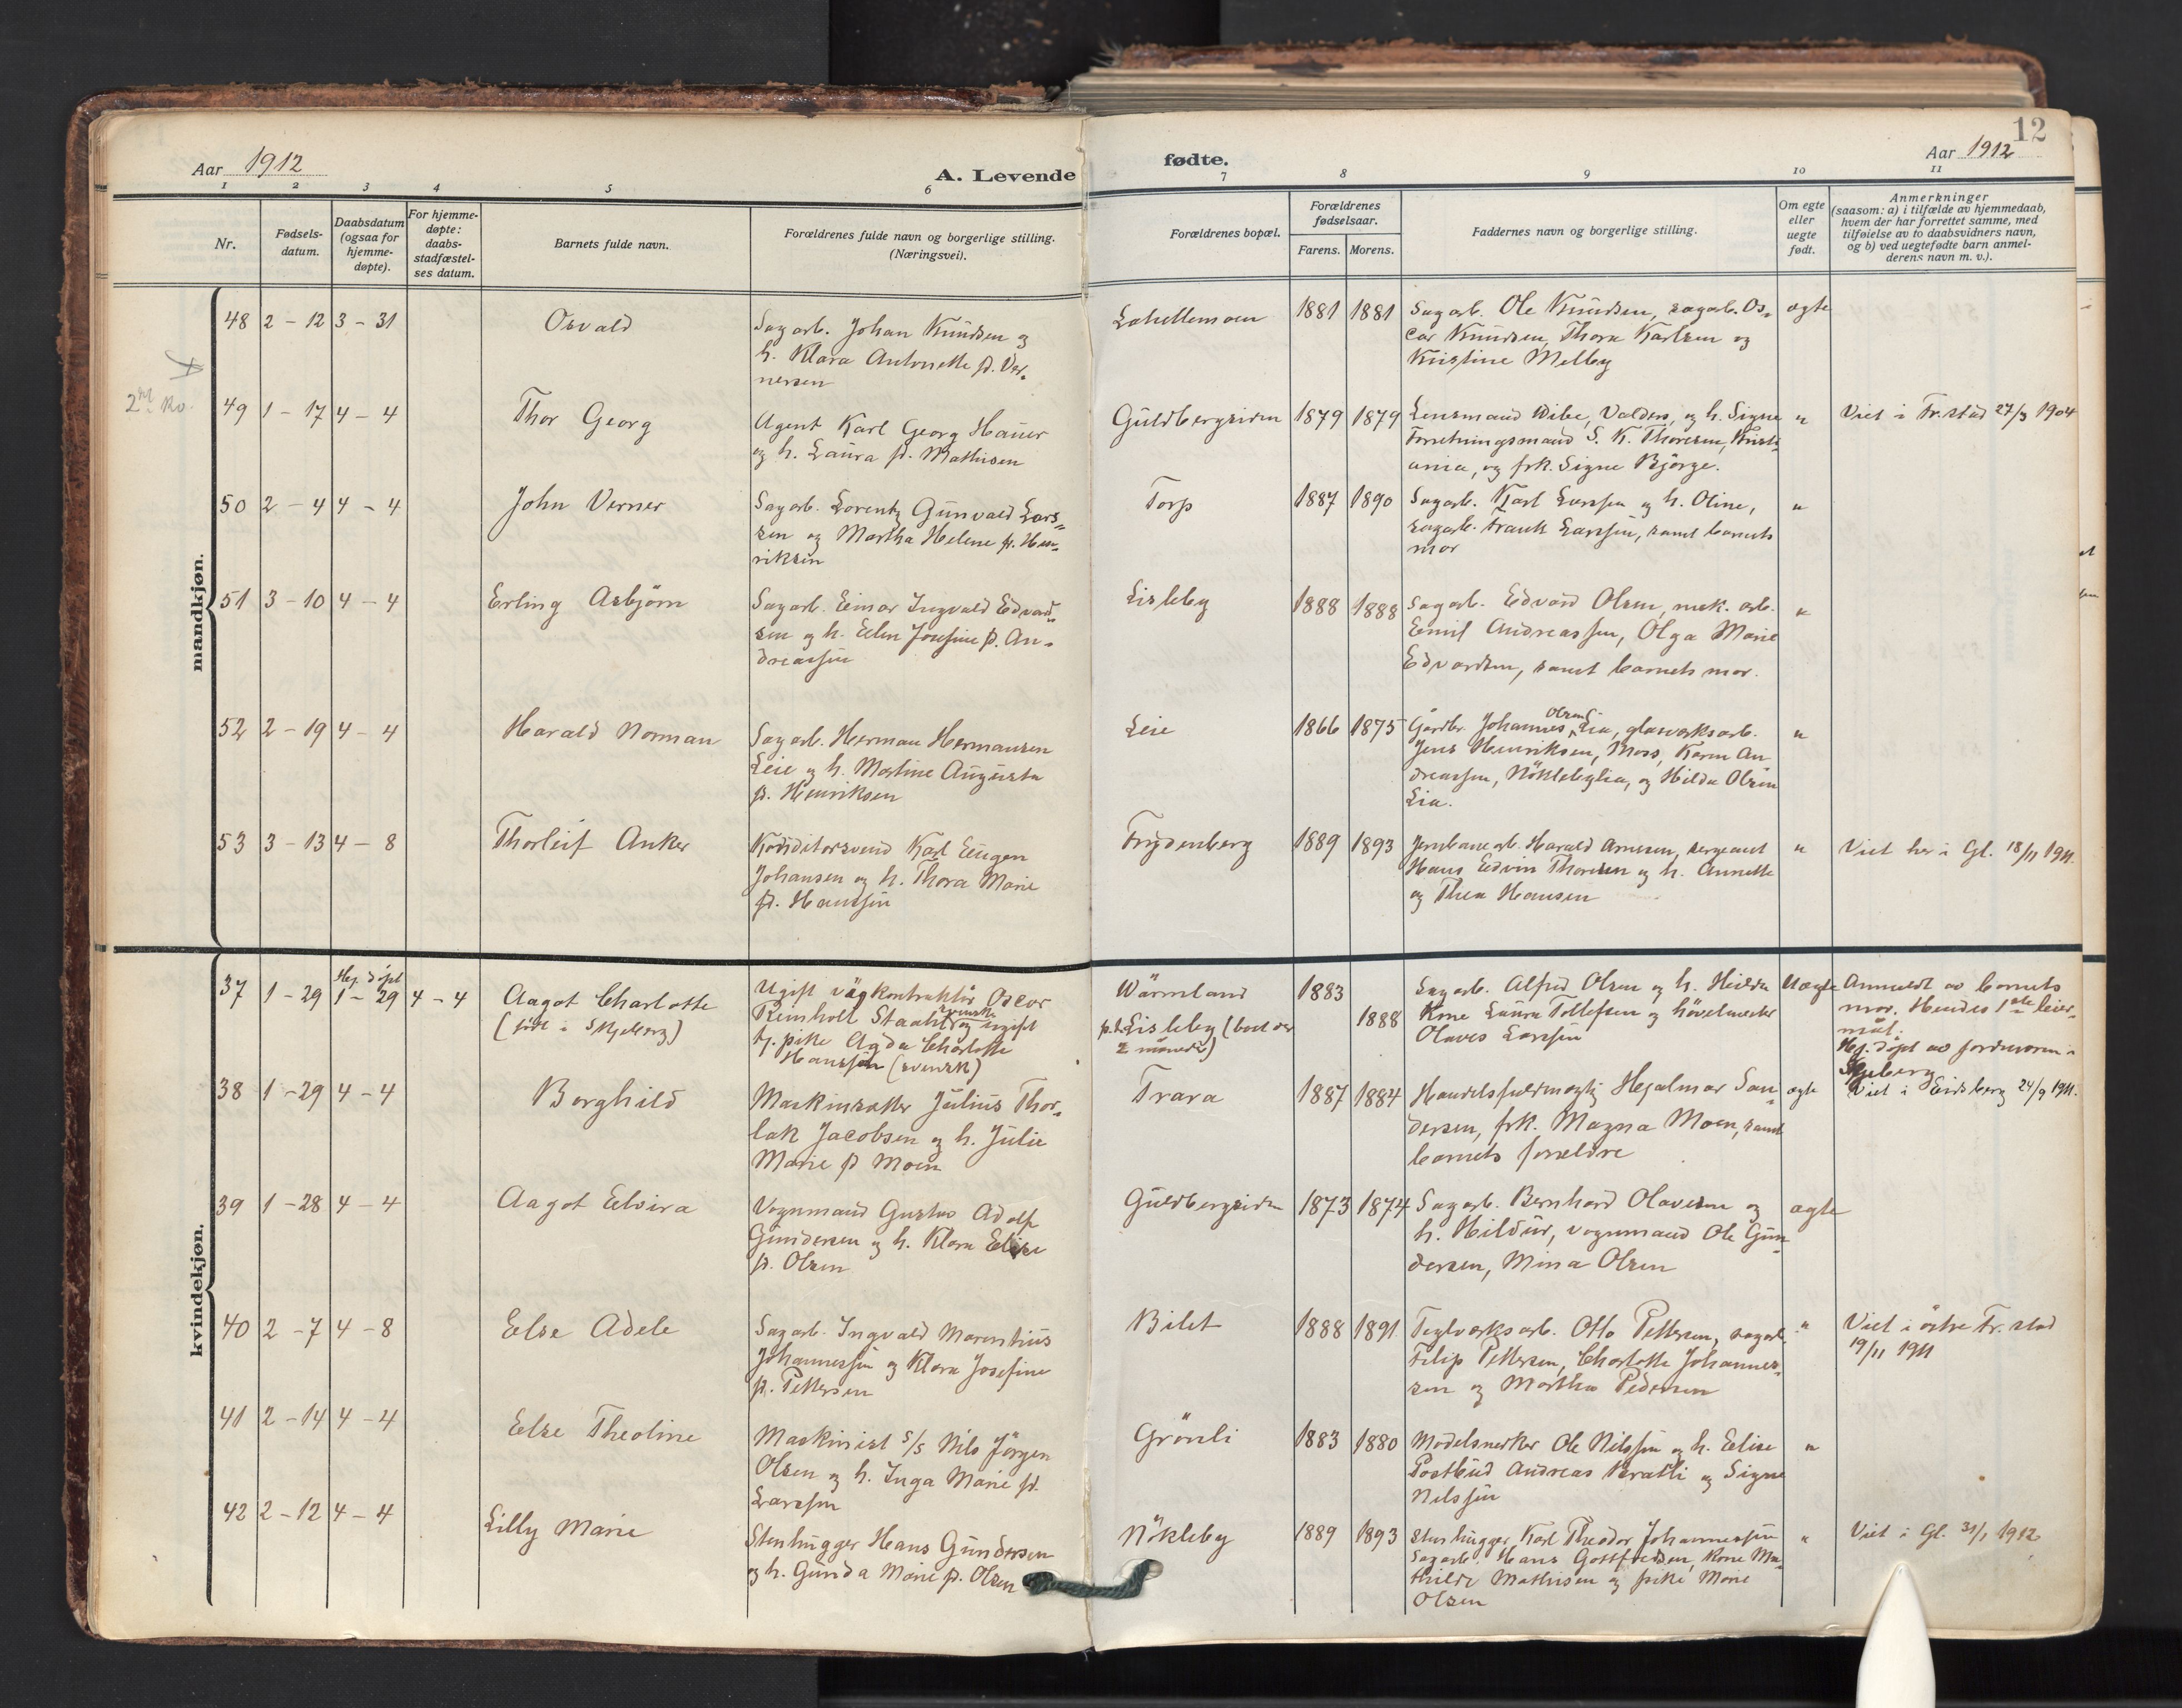 12
Aar 1912
A. Levende
fødte.
Aar 1912
1 2 3 4 5 6 7 8 9 10 11
Nr.
Fødsels-
datum.
Daabsdatum
(ogsaa for
hjemme-
døpte).
For hjemme-
døpte:
daabs-
stadfæstel-
ses datum.
Barnets fulde navn.
Forældrenes fulde navn og borgerlige stilling.
(Næringsvei).
Forældrenes bopæl.
Forældrenes
fødselsaar.
Farens. Morens.
Faddernes navn og borgerlige stilling.
Om egte
eller
uegte
født.
Anmerkninger
(saasom: a) i tilfælde av hjemmedaab,
hvem der har forrettet samme, med
tilføielse av to daabsvidners navn,
og b) ved uegtefødte barn anmel-
derens navn m. v.).
mandkjøn.
48 2 - 12 3 - 31 Osvald
Sagarb. Johan Knudsen og
h. Klara Antonette f. Ver-
nersen
1881 1881
Sagarb. Ole Knudsen, sagarb. Os-
car Knudsen, Thora Karlsen og
Kristine Melby
ægte
49 1 - 17 4 - 4 Thor Georg
Agent Karl Georg Hauer
og h. Laura f. Mathisen
Guldbergsiden 1879 1879
Lensmand Wibe, Valders, og h. Signe
Forretningsmand S. K. Thoresen, Kristi-
ania, og frk. Signe Bjørge.
"
Viet i Fr.stad 27/3 1904
50 2 - 4 4 - 4 John Verner
Sagarb. Lorentz Gunvald Lars-
sen og Martha Helene f. Hen-
riksen
Torp 1887 1890
Sagarb. Karl Larssen og h. Oline,
sagarb. Frank Larssen, samt barnets
mor
"
51 3 - 10 4 - 4 Erling Asbjörn
Sagarb. Einar Ingvald Edvard-
sen og h. Ellen Josefine f. An-
dreassen
Lisleby 1888 1888
Sagarb. Edvard Olsen, mek. arb.
Emil Andreassen, Olga Marie
Edvardsen, samt barnets mor.
"
52 2 - 19 4 - 4 Harald Norman
Sagarb. Herman Hermansen
Leie og h. Martine Augusta
f. Henriksen
Leie 1866 1875
Gardbr. Johannes Olsen Lia, glasverksarb.
Jens Henriksen, Moss, Karen An
dreassen, Nöklebylia, og Hilda Olsen
Lia.
"
53 3 - 13 4 - 8 Thorleif Anker
Konditorsvend Karl Eugen
Johansen og h. Thora Marie
f. Hanssen
Frydenberg 1889 1893
Jernbanearb. Harald Arnesen, sergeant
Hans Edvin Thoresen og h. Annette
og Thea Hansen
"
Viet her i Gl. 18/11 1911.
kvindekjøn.
37 1 - 29 Hj. döpt 1 - 29 4 - 4
Aagot Charlotte
(født i Skjeberg)
Ugift vägkontraktör Oscar
Reinholt Staahl svensk og ugift
tj. pike Agda Charlotte
Hanssen (svensk)
Wärmland
p.t. Lisleby (boet der
2 måneder)
1883
1888
Sagarb. Alfred Olsen og h. Hilda
Kone Laura Tollefsen og hövelmester
Olaves Larssen
Uægte
Anmeldt av barnets
mor. Hendes 1ste leier-
mål.
Hj. döpt av jordmoren i
Skjeberg
38 1 - 29 4 - 4 Borghild
Maskinsetter Julius Thor-
lak Jacobsen og h. Julie
Marie f. Moen
Trara 1887 1884
Handelsfuldmægtig Hjalmar San-
dersen, frk. Magna Moen, samt
barnets foreldre
ægte
Viet i Eidsberg 24/9 1911.
39 1 - 28 4 - 4 Aagot Elvira
Vognmand Gustav Adolf
Gundersen og h. Klara Elise
f. Olsen
Guldbergsiden 1873 1874
Sagarb. Bernhard Olavesen og
h. Hildur, vognmand Ole Gun-
dersen, Mina Olsen
ægte
40 2 - 7 4 - 8 Else Adele
Sagarb. Ingvald Marentius
Johannessen og Klara Josefine
f. Pettersen
Bilet 1888 1891
Teglverksarb. Otto Pettersen, sagarb.
Filip Pettersen, Charlotte Johannes-
sen og Martha Pedersen
"
Viet i östre Fr.stad
19/11 1911
41 2 - 14 4 - 4 Else Theoline
Maskinist s/s Nils Jörgen
Olsen og h. Inga Marie f.
Larssen
Grönli 1883 1880
Modelsnekker Ole Nilssen og h. Elise
Postbud Andreas Bratli og Signe
Nilssen
"
42 2 - 12 4 - 4 Lilly Marie
Stenhugger Hans Gundersen
og h. Gunda Marie f. Olsen
Nökleby 1889 1893
Stenhugger Karl Theodor Johannessen
Sagarb. Hans Gottfredsen, Kone Ma-
thilde Mathisen og pike Marie
Olsen
"
Viet i Gl. 31/1 1912